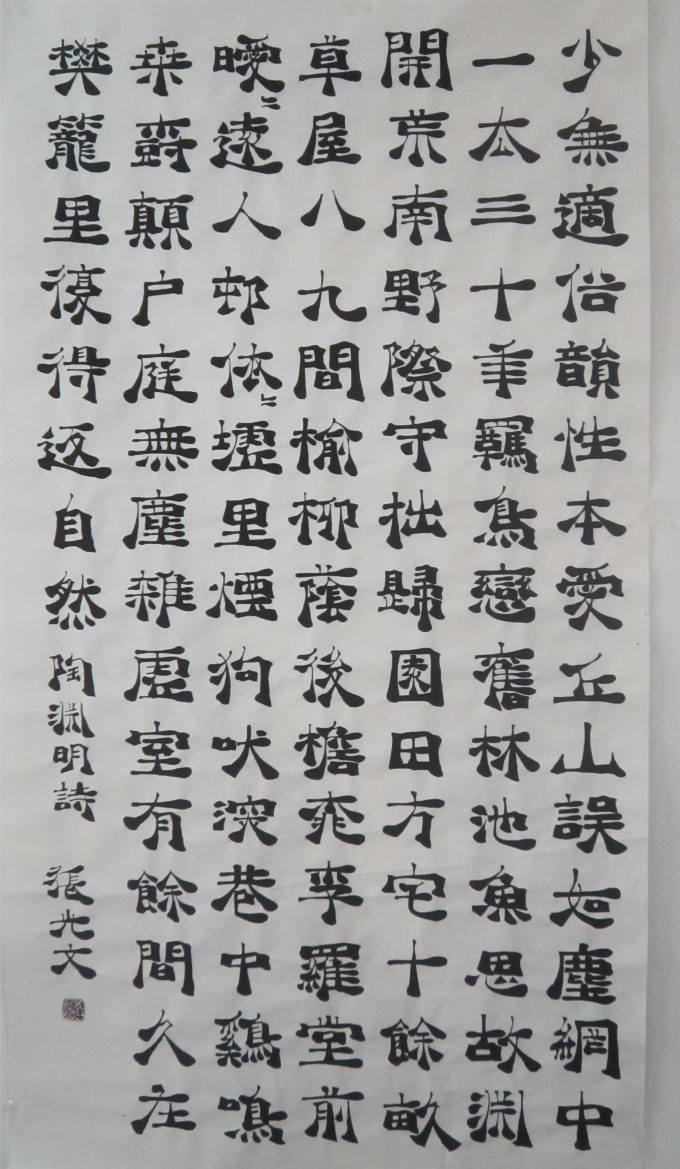 少無適俗韻性本愛丘山誤如塵網中
一去三十年羈鳥戀舊林池魚思故淵
開荒南野際守拙歸園田方宅十餘畝
草屋八九間榆柳蔭後檐桃李羅堂前
曖〻遠人邨依〻墟里煙狗吠深巷中鷄鳴
桑樹顛户庭無塵雜虛室有餘間久在
樊籠里復得返自然 陶淵明詩 張光文